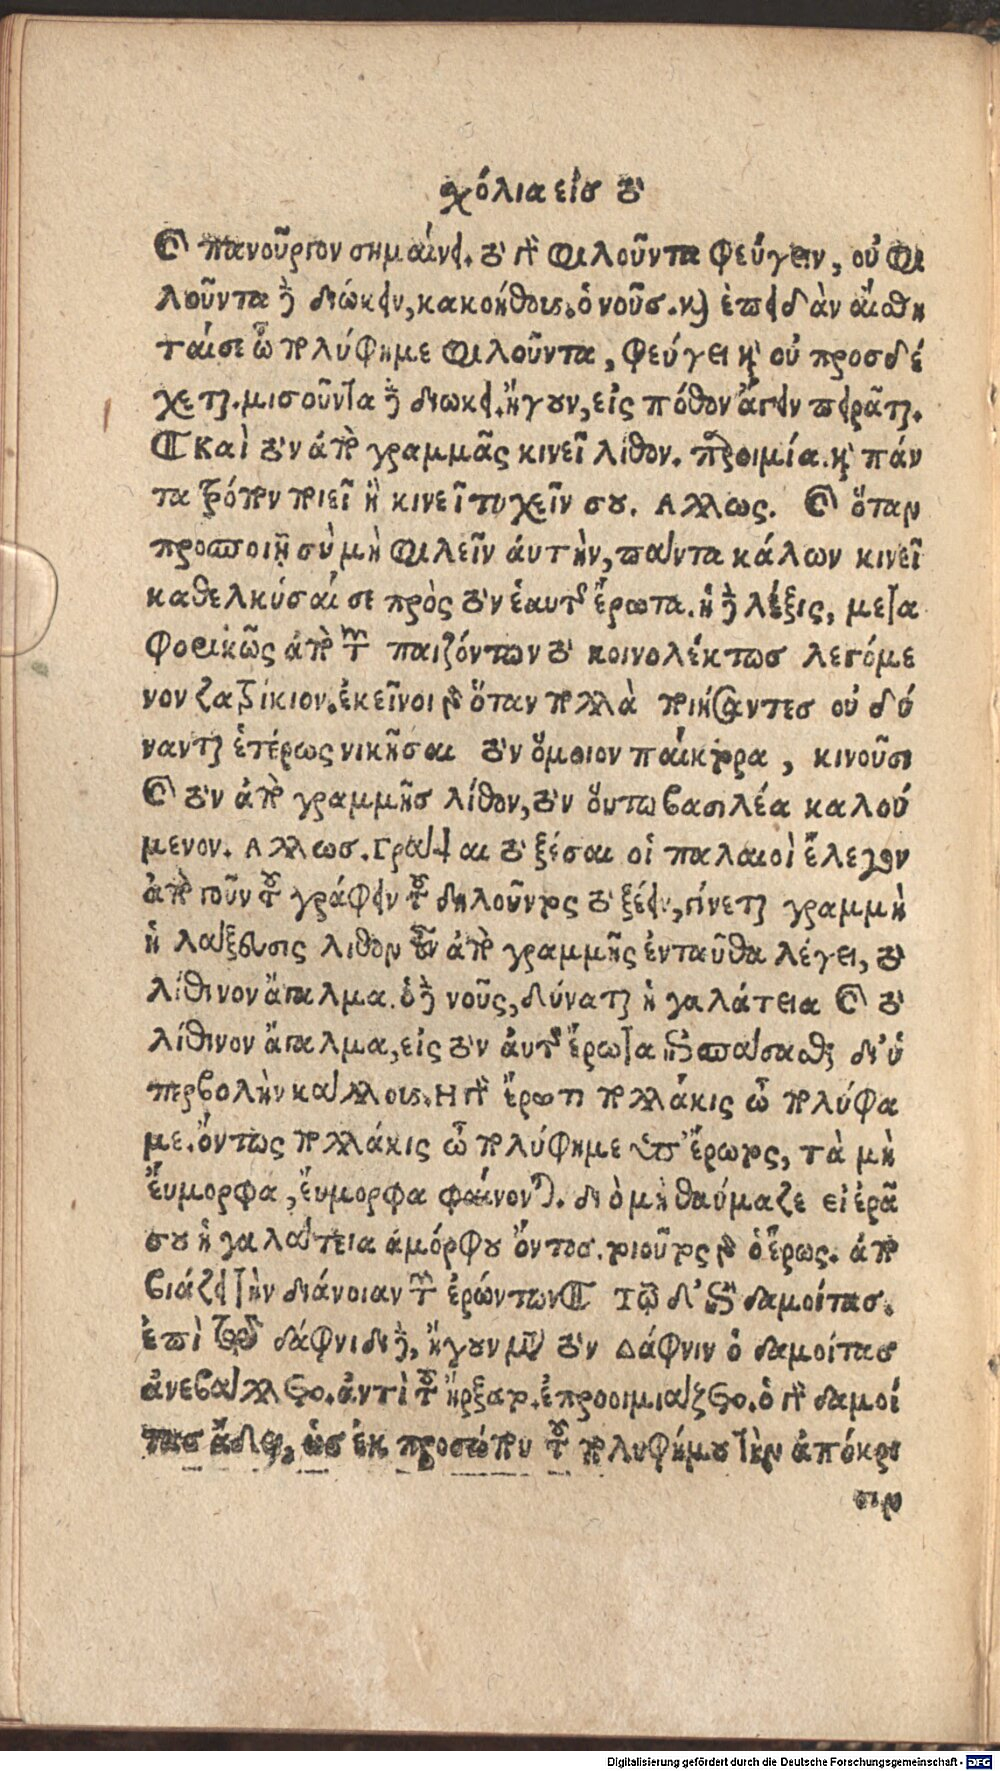 χόλια εἰσ τὸ
καὶ πανοῦργον σημαίνει. τὸ γὰρ φιλοῦντα φεύγειν, οὐ φι
λοῦντα δὲ διώκειν, κακοήθους. ὁ νοῦσ. καὶ ἐπειδὰν αἴσθη
ταί σε ὦ πολύφημε φιλοῦντα, φεύγει καὶ οὐ προσδέ
χεται. μισοῦντα δὲ διώκει. ἤγουν, εἰς πόθον ἄγειν πειρᾶται.
Καὶ τὸν ἀπὸ γραμμᾶς κινεῖ λίθον. παροιμία. καὶ πάν
τα τρόπον ποιεῖ ἢ κινεῖ τυχεῖν σου. Αλλως. καὶ ὅταν
προσποιῇ σὺ μὴ φιλεῖν ἀυτὴν, πάντα κάλων κινεῖ
καθελκύσαί σε πρὸς τὸν ἑαυτῆς ἔρωτα. ἡ δὲ λέξις, μετα
φορικῶς ἀπὸ τῶν παιζόντων τὸ κοινολέκτωσ λεγόμε
νον ζατρίκιον. ἐκεῖνοι γὰρ ὅταν πολλὰ ποιήσαντεσ οὐ δύ
νανται ἑτέρως νικῆσαι τὸν ὅμοιον παίκτορα, κινοῦσι
καὶ τὸν ἀπὸ γραμμῆσ λίθον, τὸν ὅυτω βασιλέα καλού
μενον. Αλλωσ. Γράψαι τὸ ξέσαι οἱ παλαιοὶ ἔλεγον
ἀπὸ γοῦν τοῦ γράφειν τοῦ δηλοῦντος τὸ ξέειν, γίνεται γραμμὴ
ἡ λάξευσις λίθον οὖν ἀπὸ γραμμῆς ἐνταῦθα λέγει, τὸ
λίθινον ἄγαλμα. ὁ δὲ νοῦς, δύναται ἡ γαλάτεια καὶ τὸ
λίθινον ἄγαλμα, εἰς τὸν ἀυτῆς ἔρωτα ἐπισπάσασθαι δι᾽ ὑ
περβολὴν κάλλους. Η γὰρ ἔρωτι πολλάκις ὦ πολύφα
με. ὄντως πολλάκις ὦ πολύφημε ὑπ᾽ ἔρωτος, τὰ μὴ
ἔυμορφα, ἔυμορφα φαίνονται. διὸ μὴ θαύμαζε εἰ ἐρᾶ
σου ἡ γαλάτεια ἀμόρφου ὄντοσ. τοιοῦτος γὰρ ὁ ἔρως. ἀπο
βιάζει τὴν διάνοιαν τῶν ἐρώντων Τῷ δ᾽ ἐπὶ δαμοίτασ.
ἐπὶ τῷ δάφνιδι δὲ, ἤγουν μετὰ τὸν Δάφνιν ὁ δαμοίτασ
ἀνεβάλλετο. ἀντὶ τοῦ ἤρξατο. ἐπροοιμιάζετο. ὁ γὰρ δαμοί
τασ ἄδει, ὡσ ἐκ προσώπου τοῦ πολυφήμου τὴν ἀπόκρι
σιν
Digitalisierung gefördert durch die Deutsche Forschungsgemeinschaft - DFG